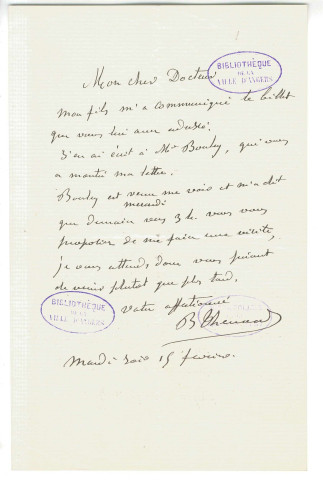 BIBLIOTHÈQUE
DE LA
VILLE D'ANGERS
Mon cher Docteur
mon fils m'a communiqué le billet
que vous lui avez adressé.
J'en ai écrit à Mr Bouley, qui vous
a montré ma lettre.
Bouley est venu me voir et m'a dit
mercredi
que demain vers 3 h. vous vous
proposiez de me faire une visite,
je vous attends donc vous priant
de venir plutot que plus tard.
votre affectionné
BIBLIOTHÈQUE
DE LA
VILLE D'ANGERS
B Thenard
Mardi soir 15 février.